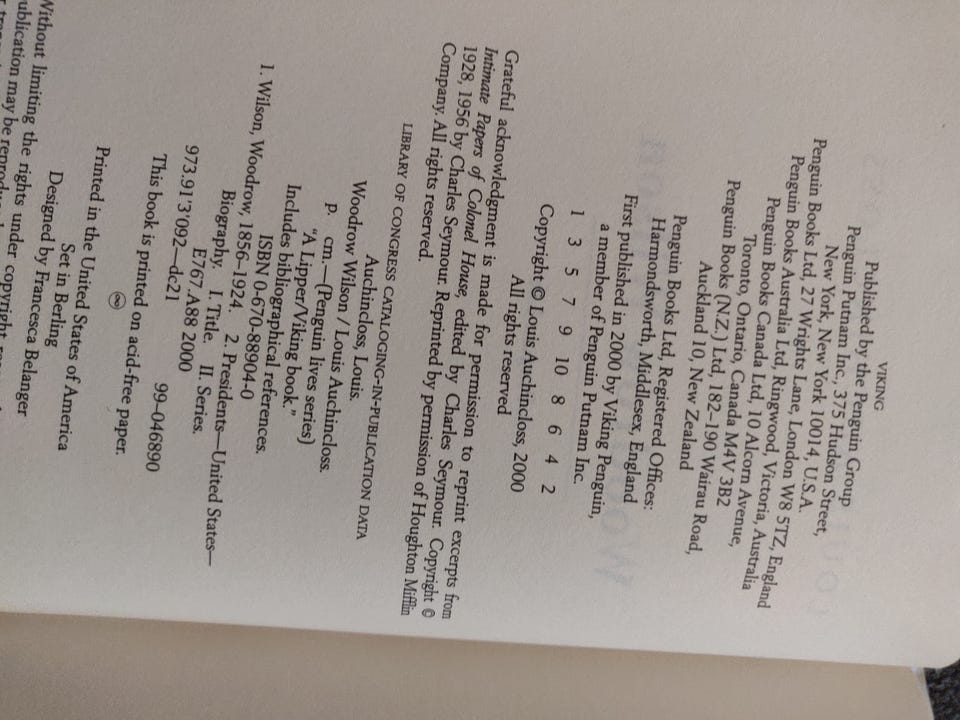 VIKING
Published by the Penguin Group
Penguin Putnam Inc., 375 Hudson Street,
New York, New York 10014, U.S.A.
Penguin Books Ltd, 27 Wrights Lane, London W8 5TZ, England
Penguin Books Australia Ltd, Ringwood, Victoria, Australia
Penguin Books Canada Ltd, 10 Alcorn Avenue,
Toronto, Ontario, Canada M4V 3B2
Penguin Books (N.Z.) Ltd, 182–190 Wairau Road,
Auckland 10, New Zealand
Penguin Books Ltd, Registered Offices:
Harmondsworth, Middlesex, England
First published in 2000 by Viking Penguin,
a member of Penguin Putnam Inc.
1 3 5 7 9 10 8 6 4 2
Copyright © Louis Auchincloss, 2000
All rights reserved
Grateful acknowledgment is made for permission to reprint excerpts from
Intimate Papers of Colonel House, edited by Charles Seymour. Copyright ©
1928, 1956 by Charles Seymour. Reprinted by permission of Houghton Mifflin
Company. All rights reserved.
LIBRARY OF CONGRESS CATALOGING-IN-PUBLICATION DATA
Auchincloss, Louis.
Woodrow Wilson / Louis Auchincloss.
p. cm.—(Penguin lives series)
"A Lipper/Viking book."
Includes bibliographical references.
ISBN 0-670-88904-0
1. Wilson, Woodrow, 1856-1924. 2. Presidents—United States—
Biography. I. Title. II. Series.
E767.A88 2000
973.91'3'092—dc21 99-046890
This book is printed on acid-free paper.
Printed in the United States of America
Set in Berling
Designed by Francesca Belanger
Without limiting the rights under copyright
publication may be